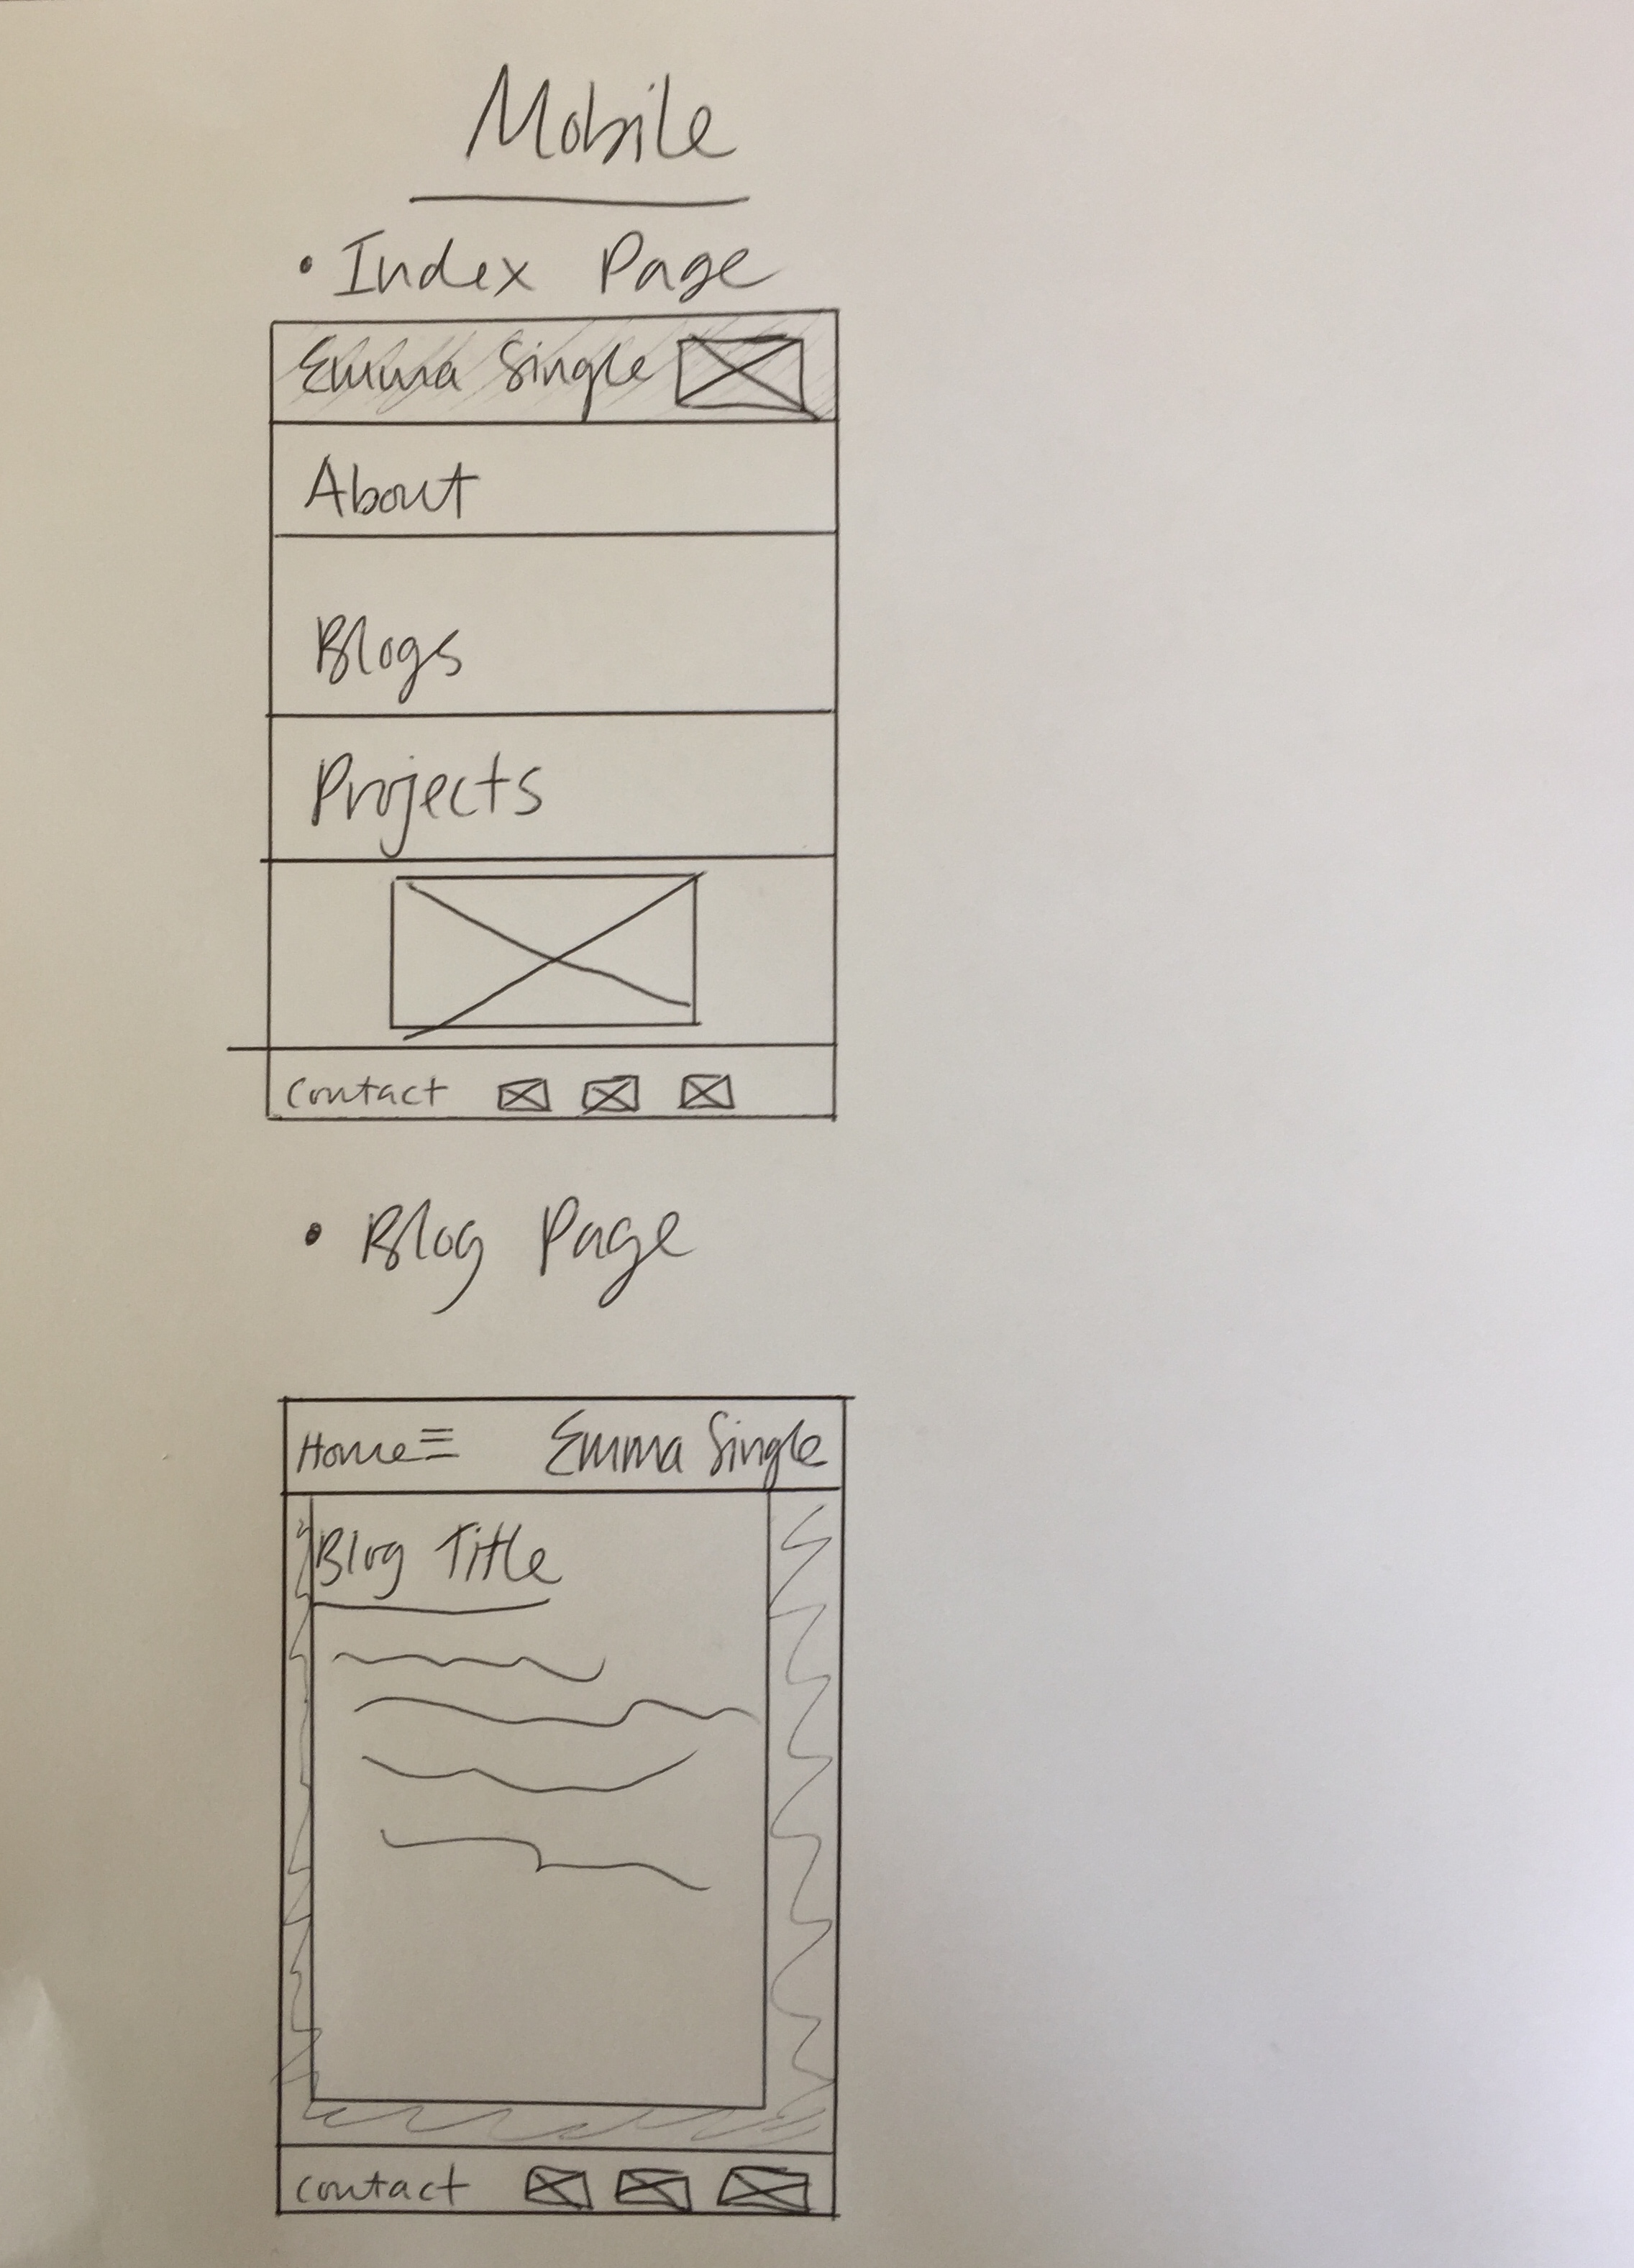 Mobile
• Index Page
Emma Single
About
Blogs
Projects
Contact
• Blog Page
Home ≡ Emma Single
Blog Title
contact